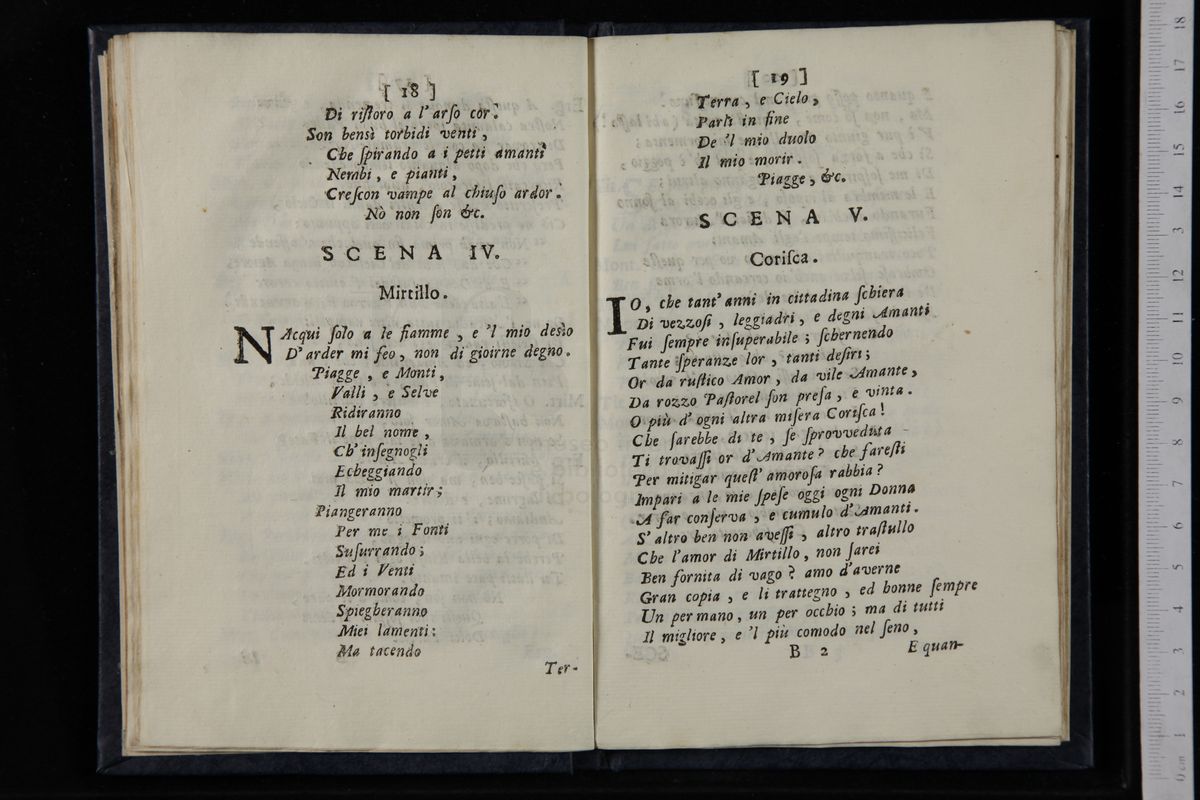 [ 18 ]
Di riſtoro a l' arſo cor:
Son bensì torbidi venti,
Che ſpirando a i petti amanti
Nembi, e pianti,
Creſcon vampe al chiuſo ardor:
Nò non ſon &c.
SCENA IV.
Mirtillo.
NAcqui ſolo a le fiamme, e 'l mio deſio
D' arder mi feo, non di gioirne degno.
Piagge, e Monti,
Valli, e Selve
Ridiranno
Il bel nome,
Ch' inſegnogli
Echeggiando
Il mio martir;
Piangeranno
Per me i Fonti
Suſurrando;
Ed i Venti
Mormorando
Spiegheranno
Miei lamenti:
Ma tacendo
Ter-
[ 19 ]
Terra, e Cielo,
Parli in fine
De 'l mio duolo
Il mio morir.
Piagge, &c.
SCENA V.
Coriſca.
IO, che tant' anni in cittadina ſchiera
Di vezzoſi, leggiadri, e degni Amanti
Fui ſempre inſuperabile; ſchernendo
Tante ſperanze lor, tanti deſiri;
Or da ruſtico Amor, da vile Amante,
Da rozzo Paſtorel ſon preſa, e vinta.
O più d' ogni altra miſera Coriſca!
Che ſarebbe di te, ſe ſprovveduta
Ti trovaſſi or d' Amante? che fareſti
Per mitigar queſt' amoroſa rabbia?
Impari a le mie ſpeſe oggi ogni Donna
A far conſerva, e cumulo d' Amanti.
S' altro ben non aveſſi, altro traſtullo
Che l'amor di Mirtillo, non ſarei
Ben fornita di vago? amo d'averne
Gran copia, e li trattegno, ed honne ſempre
Un per mano, un per occhio; ma di tutti
Il migliore, e 'l più comodo nel ſeno,
B 2 E quan-
0 cm 1 2 3 4 5 6 7 8 9 10 11 12 13 14 15 16 17 18